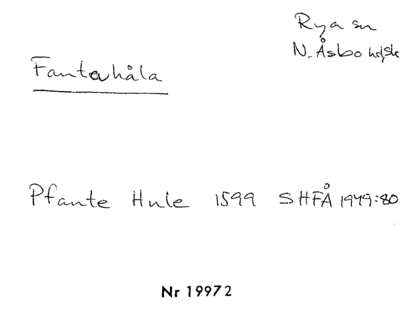 Rya sn
N. Åsbo hd, sk
Fantahåla
Pfante Hule 1599 SHFÅ 1949:80
Nr 19972